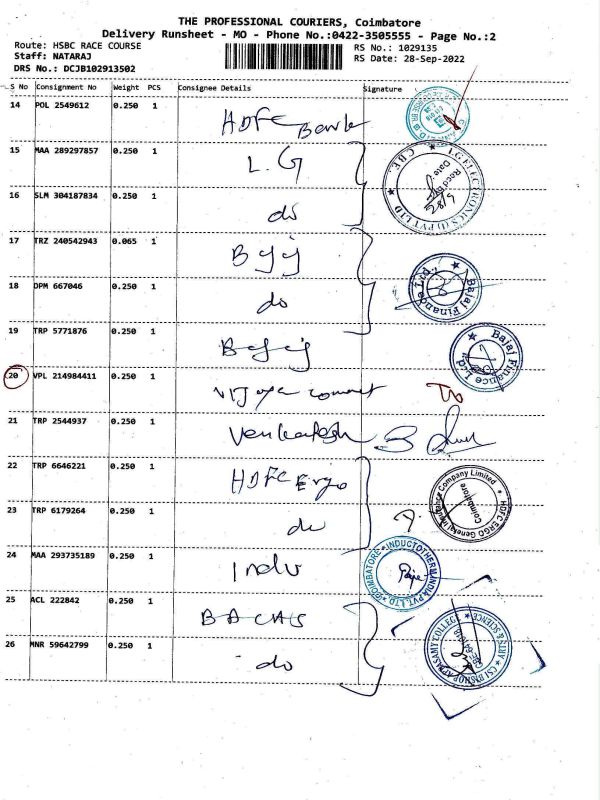 THE PROFESSIONAL COURIERS, Coimbatore
Delivery Runsheet - MO - Phone No.:0422-3505555 - Page No.:2
Route: HSBC RACE COURSE
RS No.: 1029135
Staff: NATARAJ
RS Date: 28-Sep-2022
DRS No.: DCJB102913502
S No Consignment No Weight PCS Consignee Details Signature
14 POL 2549612 0.250 1 HDFC Bank
15 MAA 289297857 0.250 1 L.G
LG ELECTRONICS (I) PVT LTD C.B.E.
Recd By
Date
16 SLM 304187834 0.250 1 do
17 TRZ 240542943 0.065 1 Bajaj
18 DPM 667046 0.250 1 do
Bajaj Finance Ltd.
19 TRP 5771876 0.250 1 Bajaj
Bajaj Finance Ltd
20 VPL 214984411 0.250 1
21 TRP 2544937 0.250 1 Venkatesh
22 TRP 6646221 0.250 1 HDFC Ergo
HDFC ERGO General Insurance Company Limited
Coimbatore
23 TRP 6179264 0.250 1 do
24 MAA 293735189 0.250 1 Indu
INDUCTOTHERM INDIA PVT. LTD COIMBATORE
25 ACL 222842 0.250 1 BACAS
26 MNR 59642799 0.250 1 do
CSI BISHOP APPASAMY COLLEGE ARTS & SCIENCE
CBE-641018